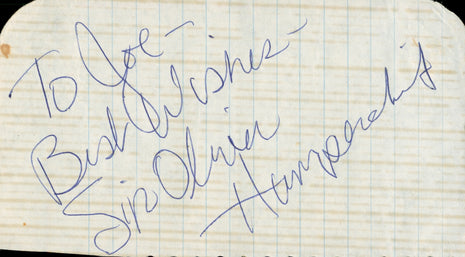 To Joe -
Best Wishes -
Sir Oliver
Humperdink